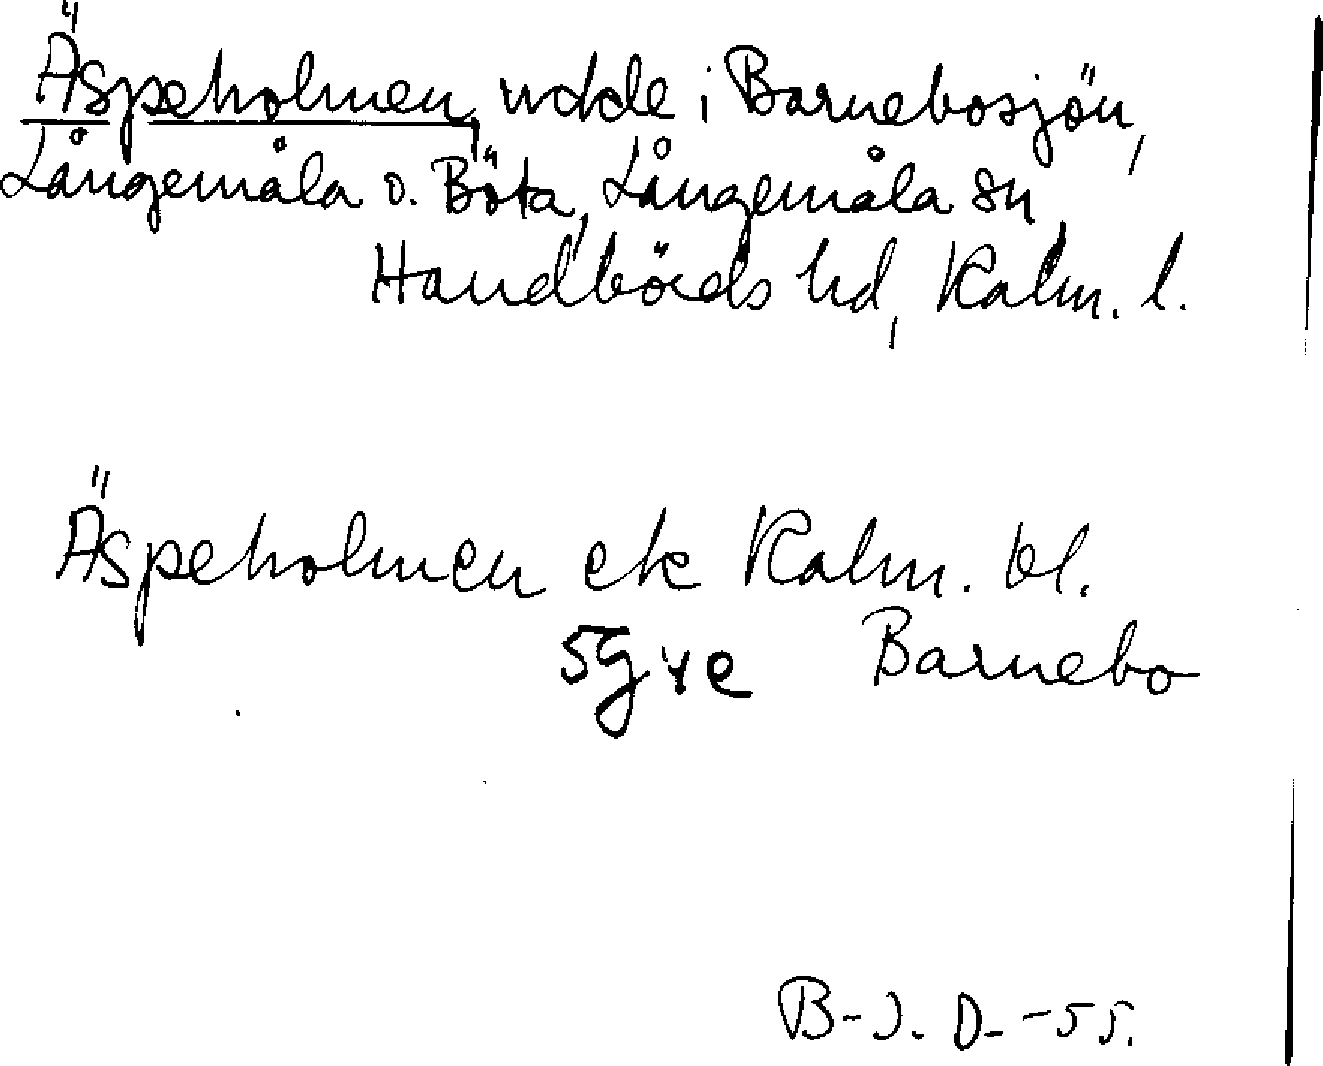 Äspeholmen, udde i Barnebosjön,
Långemåla o. Böta, Långemåla sn
Handbörds hd, Kalm. l.
Äspeholmen ek Kalm. bl.
5G ve Barnebo
B-J. D. -55.